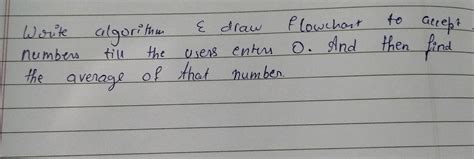 Write algorithm & draw flowchart to accept
numbers till the users enters 0. And then find
the average of that number.